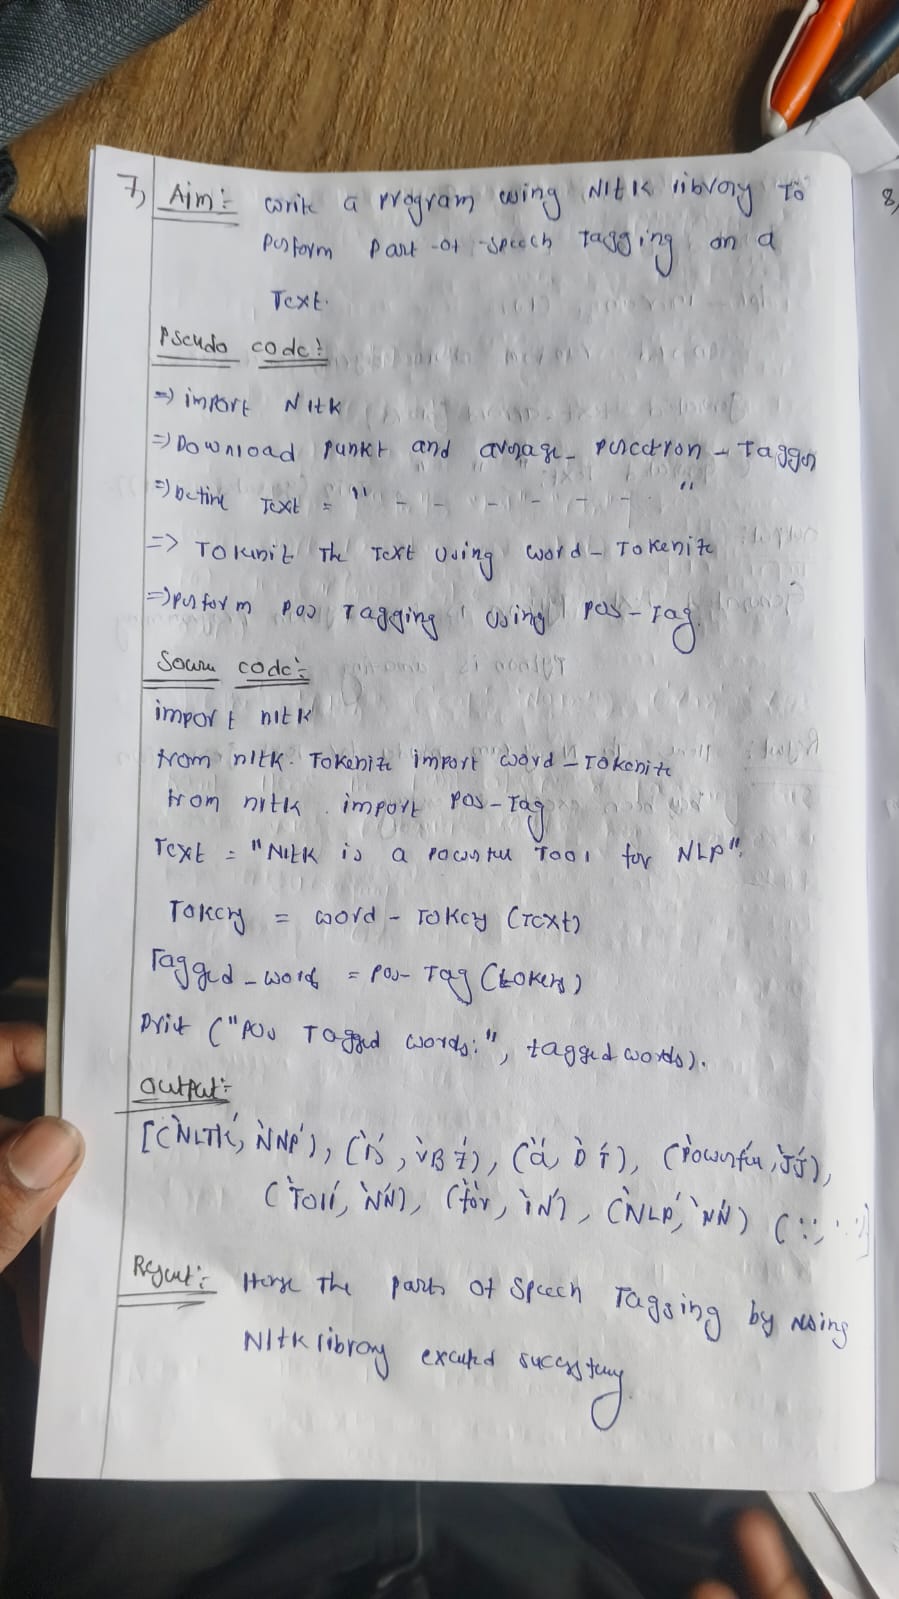 7) Aim:- write a program using Nltk library To
perform Part-of-speech Tagging on a
Text.
Pseudo code:
=> import Nltk
=> Download punkt and average_perceptron-Tagger
=> Define Text = " - - - - - - "
=> Tokeniz The Text using word-Tokenize
=> perform pos Tagging using pos-Tag.
Source code:-
import nltk
from nltk.Tokenize import word-Tokenize
from nltk. import pos-Tag
Text = "Nltk is a powerful Tool for NLP".
Tokens = word-Token (Text)
Tagged_words = pos-Tag (tokens)
Print ("POS Tagged words:", tagged words).
Output:-
[('NLTK', 'NNP'), ('is', 'VBZ'), ('a', 'DT'), ('Powerful', 'JJ'),
('Tool', 'NN'), ('for', 'IN'), ('NLP', 'NN') ('.', '.')]
Result:- Hence The parts of Speech Tagging by using
Nltk library excuted successfully
8)